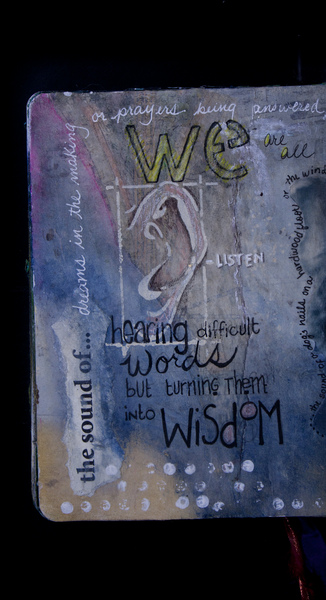 the sound of...
dreams in the making
or prayers being answered,
We
are
all
LISTEN
hearing difficult
words
but turning Them
into WiSdOM
the sound of a dog's nails on a hardwood floor or the wind